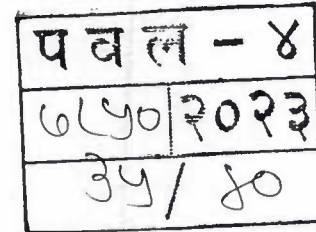 पवल - ४
७८५० २०२३
३५/४०